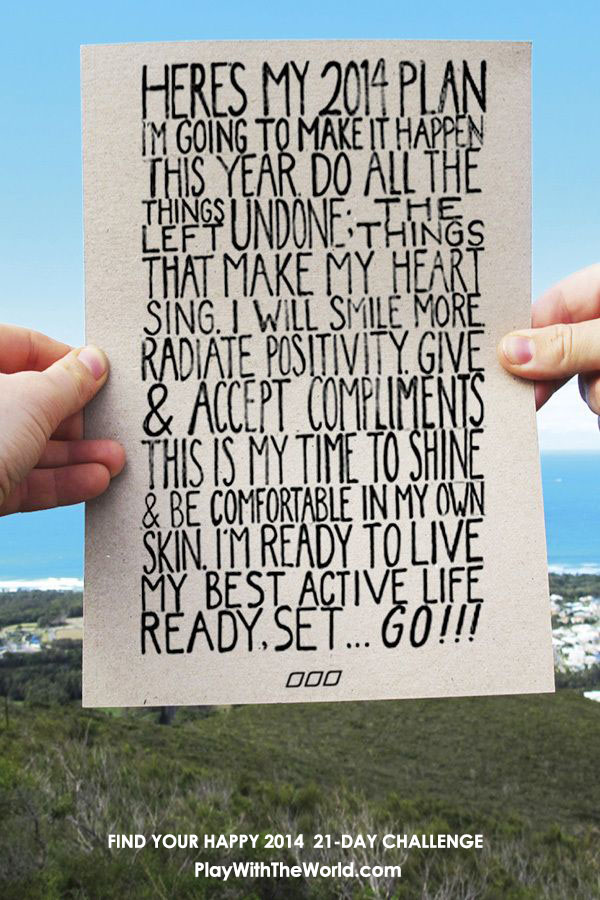 HERE'S MY 2014 PLAN
I'M GOING TO MAKE IT HAPPEN
THIS YEAR. DO ALL THE
THINGS LEFT UNDONE; THE THINGS
THAT MAKE MY HEART
SING. I WILL SMILE MORE
RADIATE POSITIVITY. GIVE
& ACCEPT COMPLIMENTS
THIS IS MY TIME TO SHINE
& BE COMFORTABLE IN MY OWN
SKIN. I'M READY TO LIVE
MY BEST ACTIVE LIFE
READY, SET... GO!!!
FIND YOUR HAPPY 2014 21-DAY CHALLENGE
PlayWithTheWorld.com